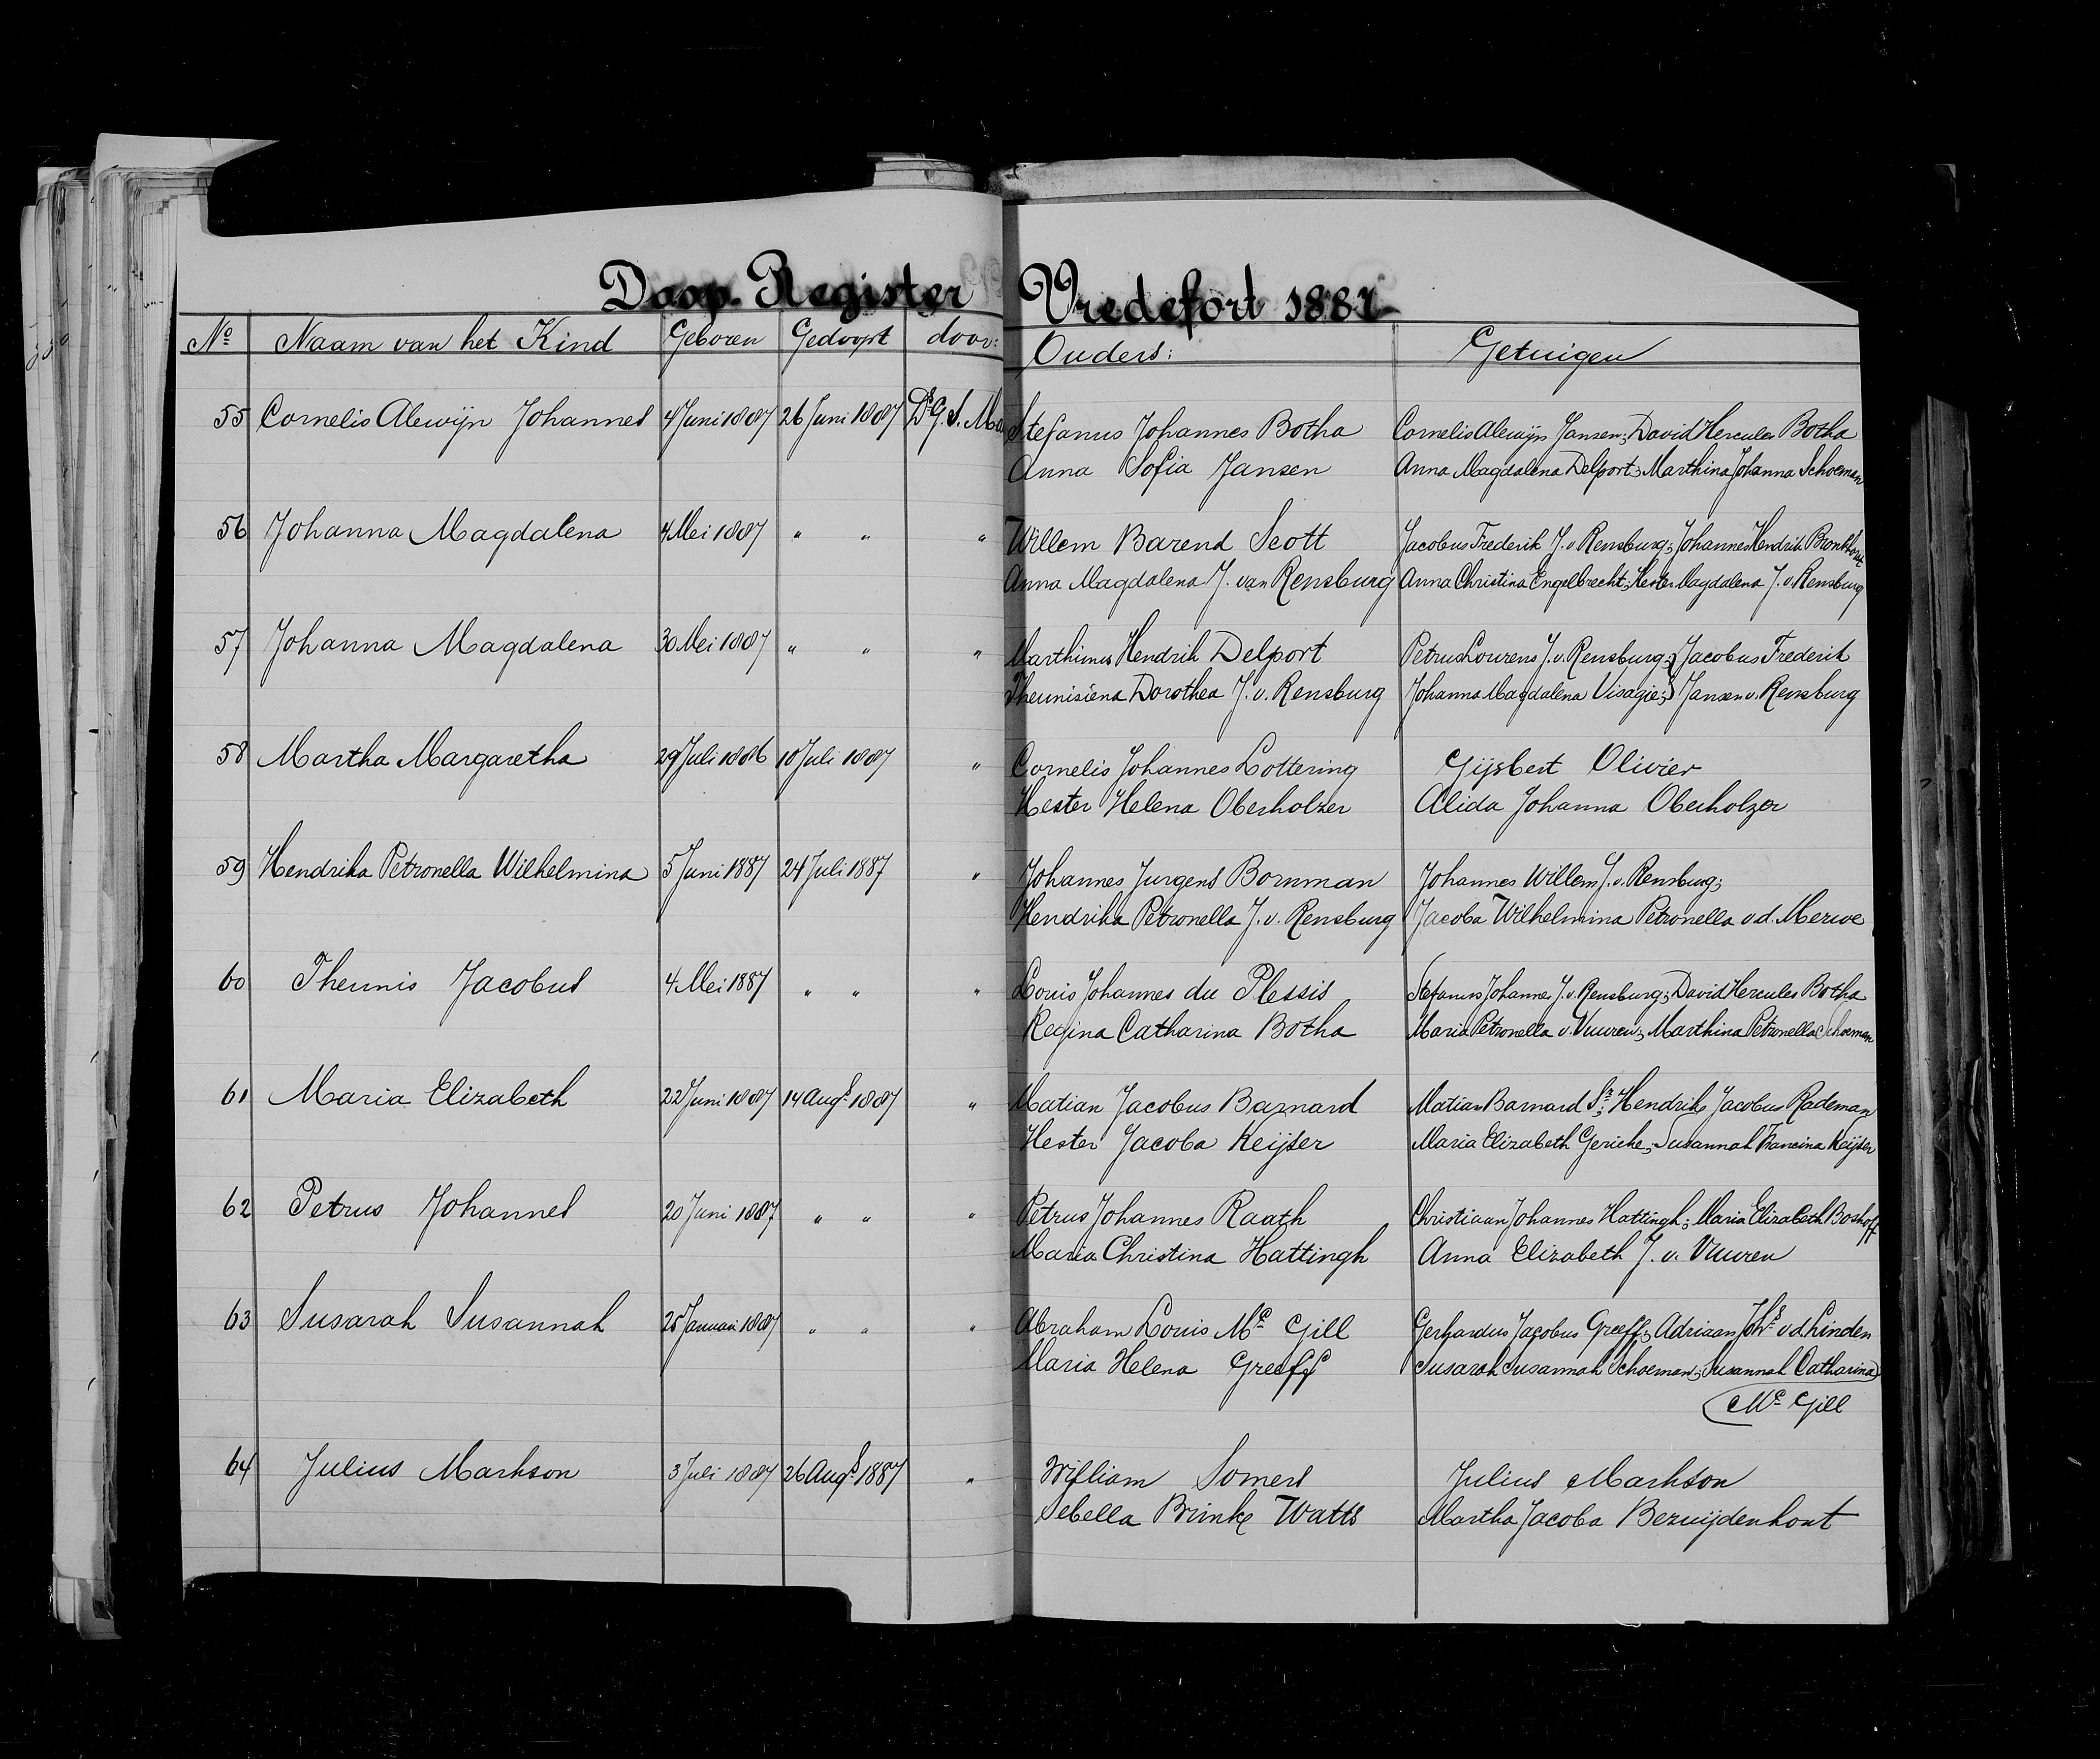 Doop Register Vredefort 1887
No Naam van het Kind Geboren Gedoopt door: Ouders: Getuigen
55 Cornelis Alewijn Johannes 4 Juni 1887 26 Juni 1887 Ds G. S. Ma Stefanus Johannes Botha Cornelis Alewijn Jansen; David Hercules Botha
Anna Sofia Jansen Anna Magdalena Delport; Marthina Johanna Schoeman
56 Johanna Magdalena 4 Mei 1887 " " " Willem Barend Scott Jacobus Frederik J. v Rensburg; Johannes Hendrik Bronkhorst
Anna Magdalena J. van Rensburg Anna Christina Engelbrecht; Hester Magdalena J. v. Rensburg
57 Johanna Magdalena 30 Mei 1887 " " " Marthinus Hendrik Delport Petrus Lourens J. v. Rensburg; } Jacobus Frederik
Theunisiena Dorothea J. v. Rensburg Johanna Magdalena Visagie; } Jansen v. Rensburg
58 Martha Margaretha 29 Juli 1886 10 Juli 1887 " Cornelis Johannes Lottering Gijsbert Olivier
Hester Helena Oberholzer Alida Johanna Oberholzer
59 Hendrika Petronella Wilhelmina 5 Juni 1887 24 Juli 1887 " Johannes Jurgens Bornman Johannes Willem J. v. Rensburg;
Hendrika Petronella J. v. Rensburg Jacoba Wilhelmina Petronella v d. Merwe
60 Theunis Jacobus 4 Mei 1887 " " " Louis Johannes du Plessis Stefanus Johannes J. v. Rensburg; David Hercules Botha
Regina Catharina Botha Maria Petronella v. Vuuren; Marthina Petronella Schoeman
61 Maria Elizabeth 22 Juni 1887 14 Augs 1887 " Matian Jacobus Barnard Matian Barnard Sr; Hendrik Jacobus Rademan
Hester Jacoba Keijser Maria Elizabeth Gericke; Susannah Francina Keijser
62 Petrus Johannes 20 Juni 1887 " " " Petrus Johannes Raath Christiaan Johannes Hattingh; Maria Elizabeth Boshoff
Maria Christina Hattingh Anna Elizabeth J. v. Vuuren
63 Susarah Susannah 25 Januari 1887 " " " Abraham Louis Mc Gill Gerhardus Jacobus Greeff; Adriaan Johs v d. Linden
Maria Helena Greeff Susarah Susannah Schoeman; Susannah Catharina
Mc Gill
64 Julius Markson 3 Juli 1887 26 Augs 1887 " William Somers Julius Markson
Sebella Brinke Watts Martha Jacoba Bezuijdenhout